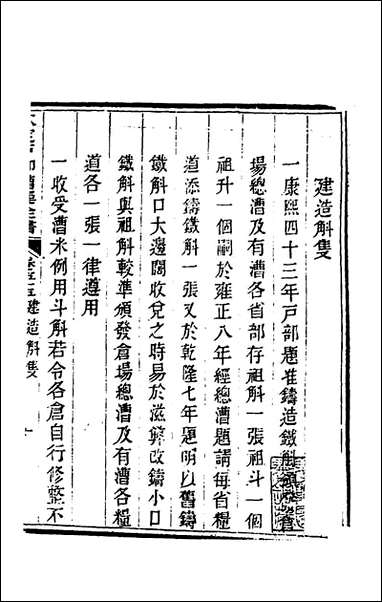 建造斛隻
一康熙四十三年戶部題准鑄造鐵斛頒發倉
場總漕及有漕各省部存祖斛一張祖斗一個
祖升一個嗣於雍正八年經總漕題請每省糧
道添鑄鐵斛一張又於乾隆七年題明以舊鑄
鐵斛口大邊闊收兌之時易於滋弊改鑄小口
鐵斛與祖斛較準頒發倉場總漕及有漕各糧
道各一張一律遵用
一收受漕米例用斗斛若令各倉自行修整不
漕運全書
建造斛隻